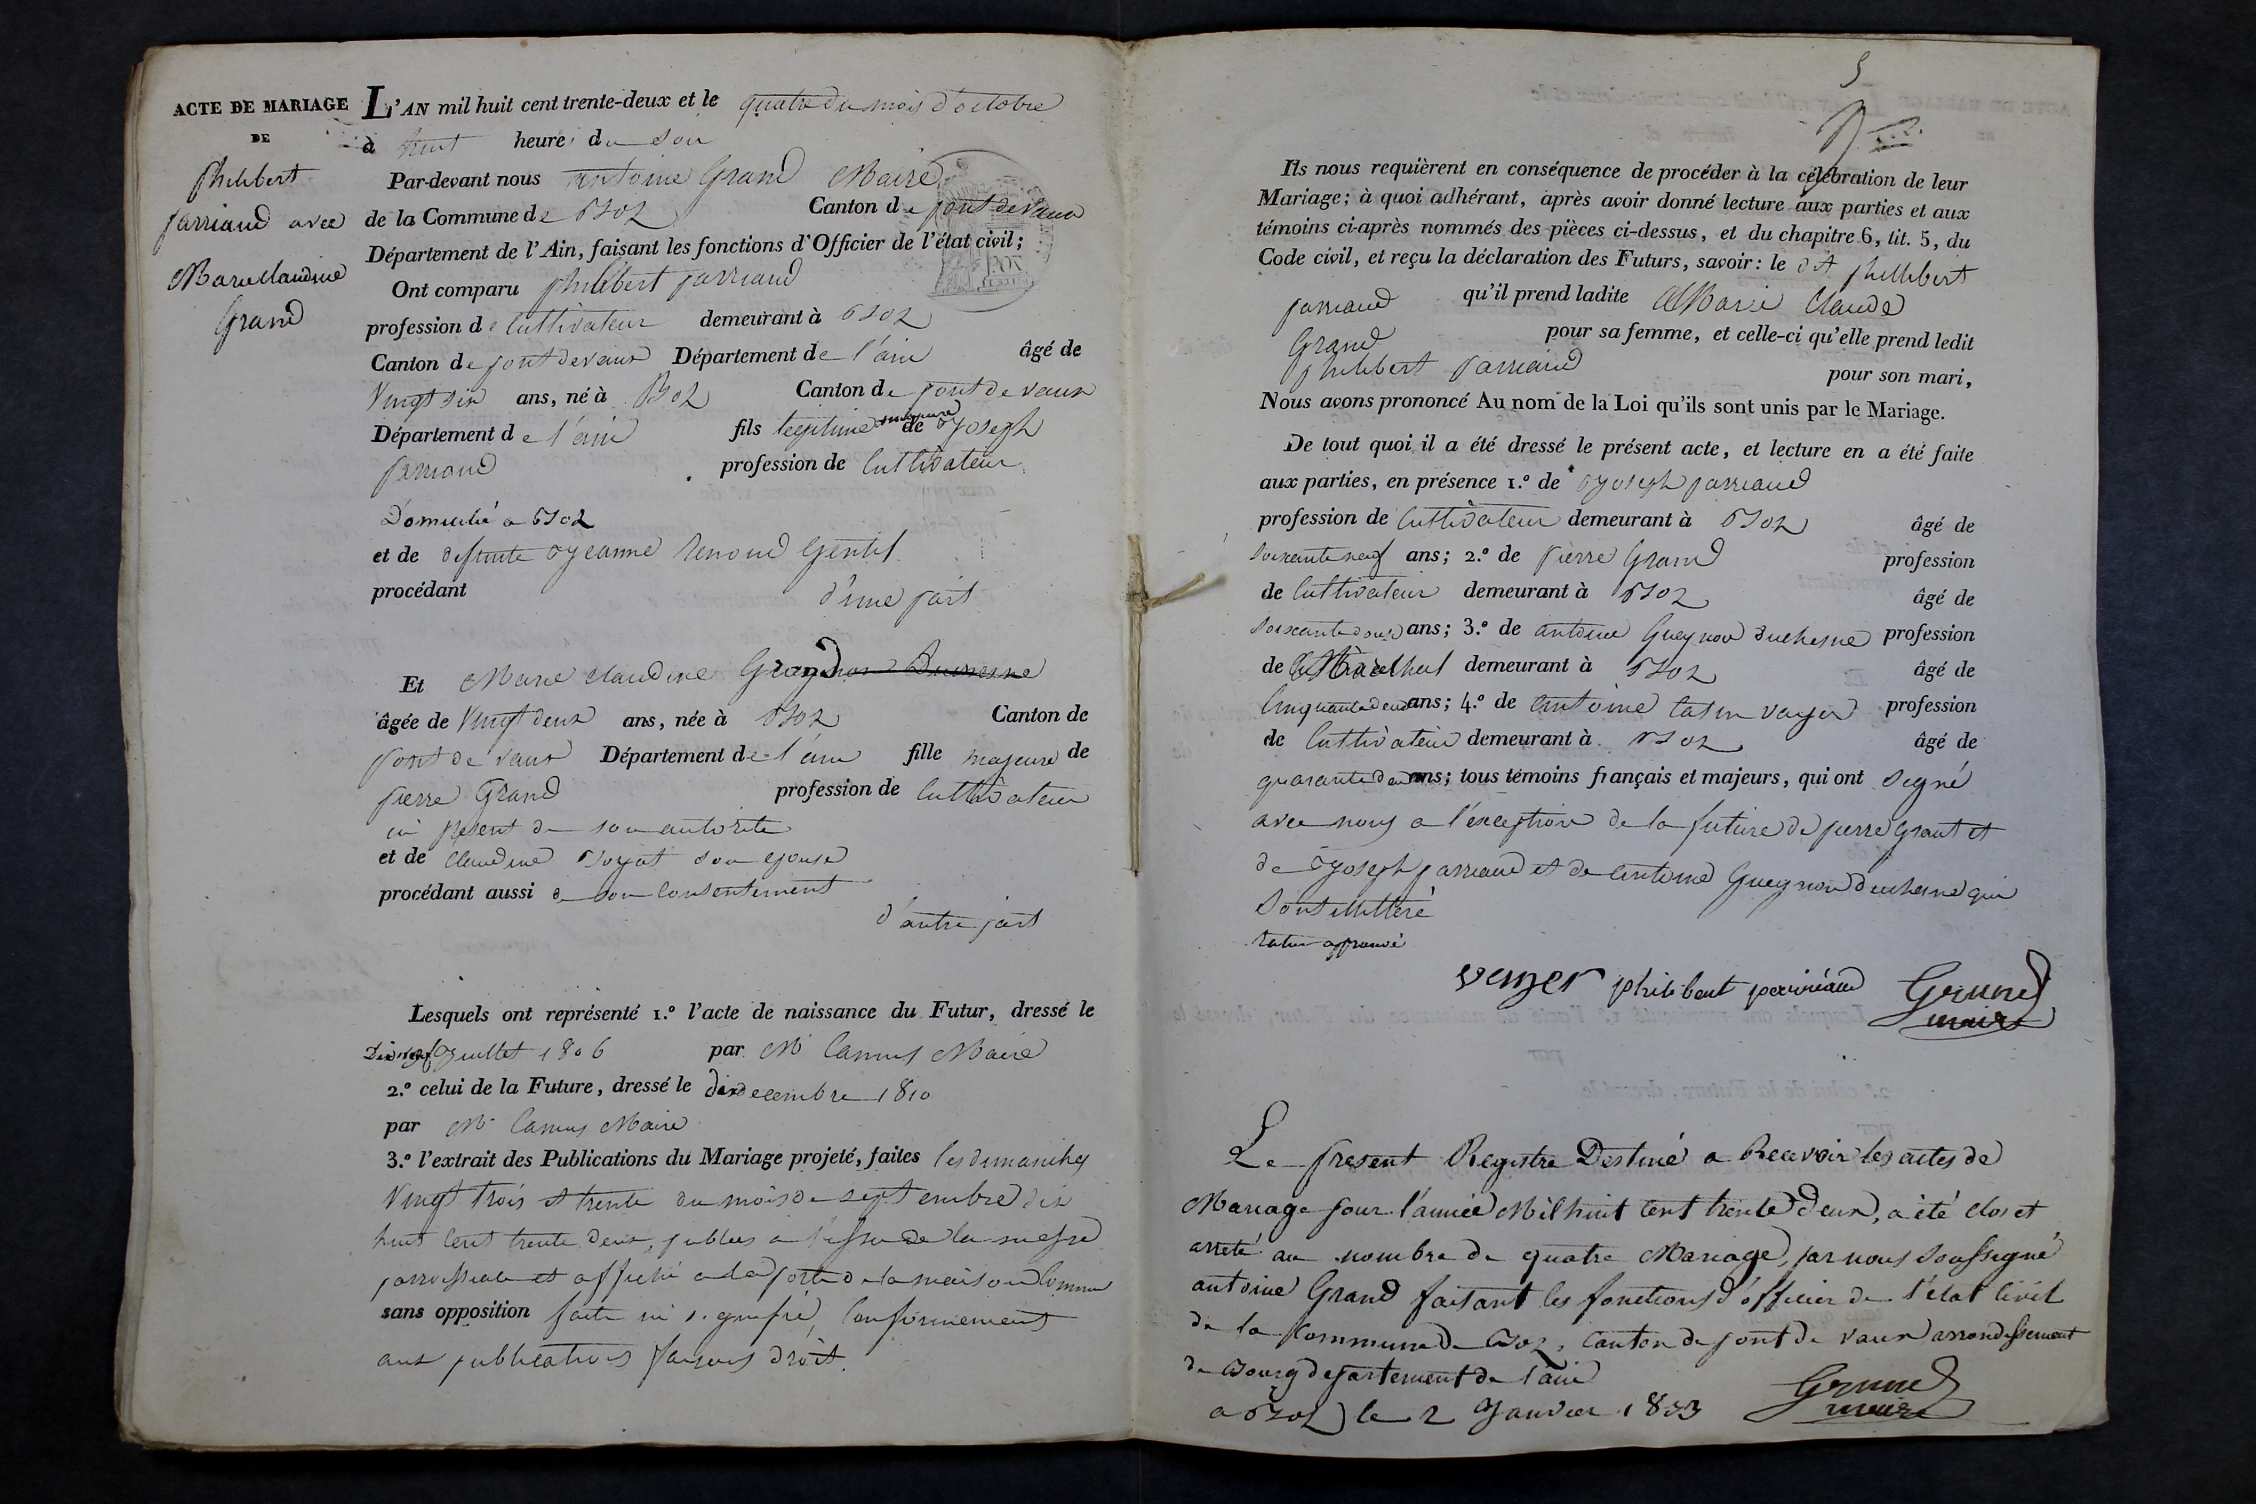 ACTE DE MARIAGE
DE
philibert
parriaud avec
Marie Claudine
Grand
L'AN mil huit cent trente-deux et le quatre du mois d'octobre
à huit heure du soir
Par-devant nous antoine Grand Maire
de la Commune de Boz Canton de pont de vaux
Département de l'Ain, faisant les fonctions d'Officier de l'état civil;
Ont comparu philibert parriaud
profession de Cultivateur demeurant à Boz
Canton de pont de vaux Département de l'ain âgé de
Vingt six ans, né à Boz Canton de pont de vaux
Département de l'ain fils legitime majeure de Joseph
parriaud profession de Cultivateur
Domicilié a Boz
et de defunte Jeanne renoud Gentil
procédant d'une part
Et Marie claudine Grand
âgée de Vingt deux ans, née à Boz Canton de
pont de vaux Département de l'ain fille majeure de
pierre Grand profession de Cultivateur
ici present de son autorite
et de claudine Boyat son epouse
procédant aussi de son Consentement
d'autre part
Lesquels ont représenté 1.º l'acte de naissance du Futur, dressé le
Dix neuf Juillet 1806 par Mr Camus Maire
2.º celui de la Future, dressé le dix decembre 1810
par Mr Camus Maire
3.º l'extrait des Publications du Mariage projeté, faites les dimanches
Vingt trois et trente du mois de septembre dix
huit Cent trente deux, publées a l'issu de la messe
parroissiale et affiché a la porte de la maison Commune
sans opposition faite ni signifié, Conformement
aux publications faisons droit.
5
Ils nous requièrent en conséquence de procéder à la célébration de leur
Mariage; à quoi adhérant, après avoir donné lecture aux parties et aux
témoins ci-après nommés des pièces ci-dessus, et du chapitre 6, tit. 5, du
Code civil, et reçu la déclaration des Futurs, savoir: le dit phillibert
parriaud qu'il prend ladite Marie Claude
Grand pour sa femme, et celle-ci qu'elle prend ledit
philibert parriaud pour son mari,
Nous avons prononcé Au nom de la Loi qu'ils sont unis par le Mariage.
De tout quoi il a été dressé le présent acte, et lecture en a été faite
aux parties, en présence 1.º de Joseph parriaud
profession de Cultivateur demeurant à Boz âgé de
soixante neuf ans; 2.º de pierre Grand profession
de Cultivateur demeurant à Boz âgé de
soixante ans; 3.º de antoine Gueynon duchesne profession
de Marechal demeurant à Boz âgé de
Cinquante deux ans; 4.º de antoine catin vayer profession
de Cultivateur demeurant à Boz âgé de
quarante deux ans; tous témoins français et majeurs, qui ont signé
avec nous a l'exception de la future de pierre Grant et
de Joseph parriaud et de antoine Gueynon duchesne qui
sont illitteré
ratur approuvé
vayer philibert perrineaud Grand
maire
Le present Registre Destiné a Recevoir les actes de
Mariage pour l'année Mil huit Cent trente deux, a été clos et
arreté au nombre de quatre Mariage, par nous soussigné
antoine Grand faisant les fonctions d'officier de l'état Civil
de la Commune de Boz, canton de pont de vaux arrondissement
de Bourg departement de l'ain
a Boz le 2 Janvier 1833 Grand
maire